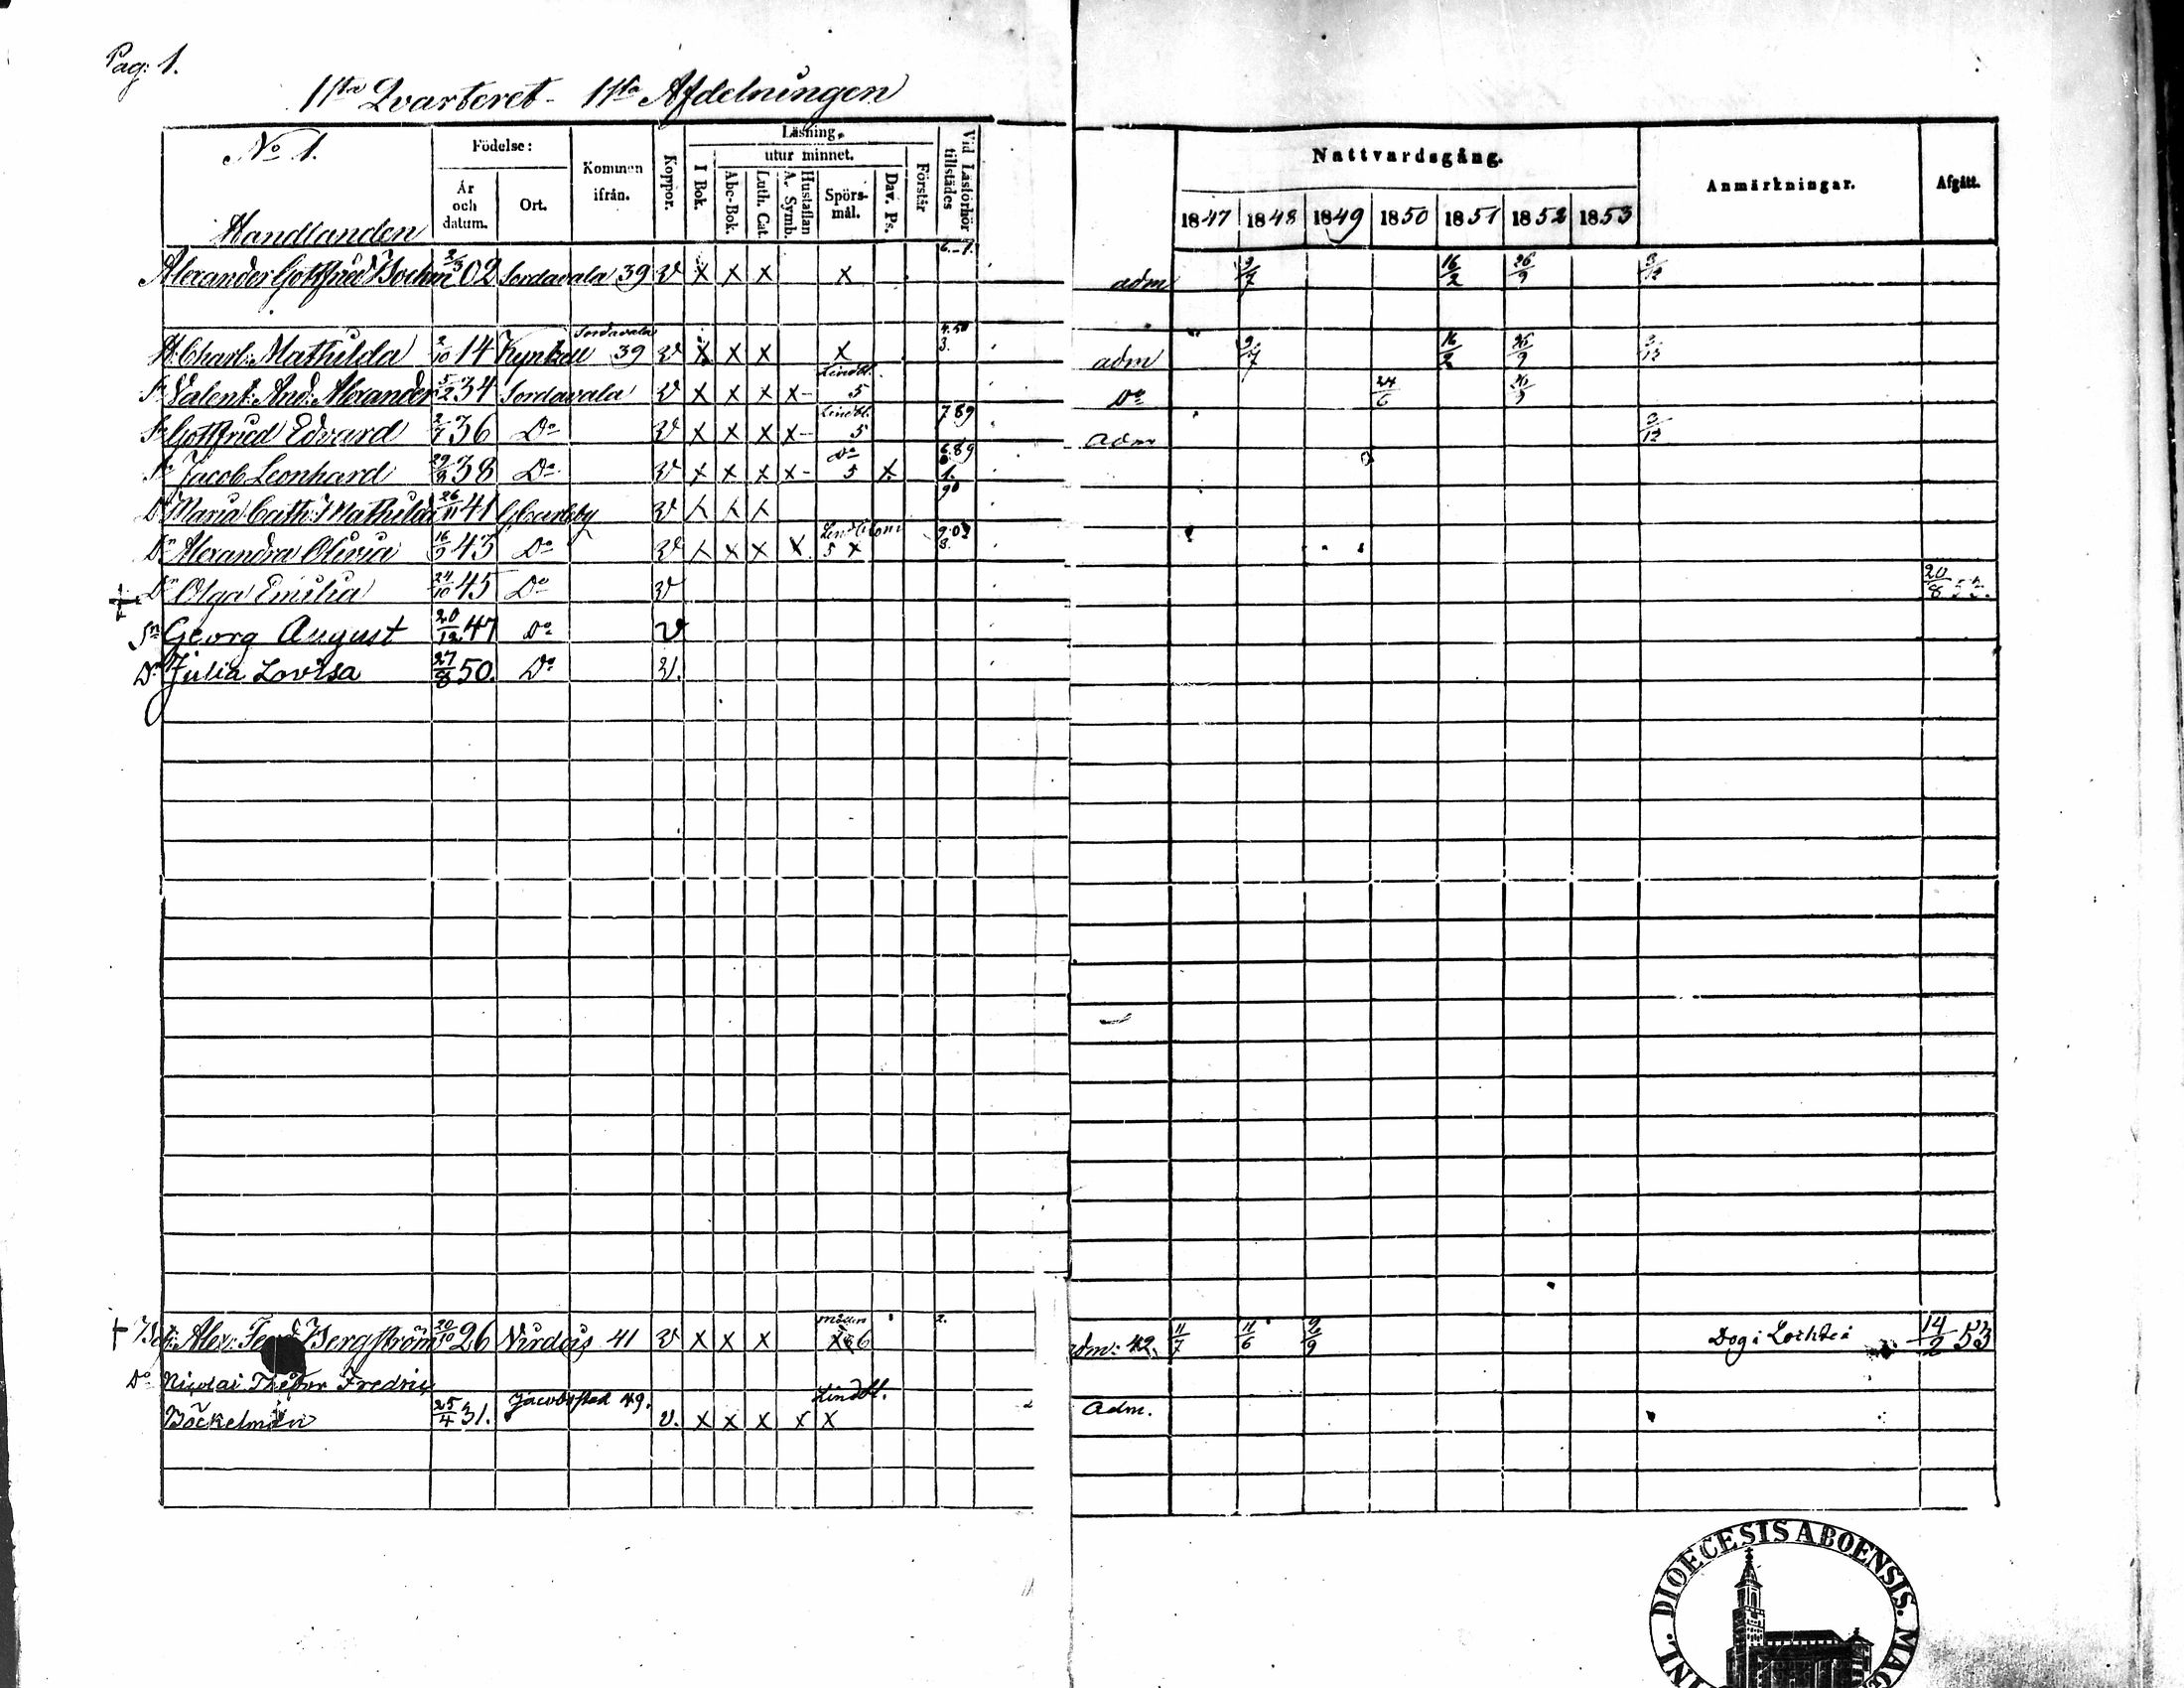 Pag: 1.
1sta Qvarteret - 1sta Afdelningen
No 1.
Handlanden
Födelse:
År och datum.
Ort.
Kommen ifrån.
Koppor.
Läsning.
I Bok.
utur minnet.
Abc-Bok.
Luth. Cat.
Hustaflan A. Symb.
Spörsmål.
Dav. Ps.
Förstår
Vid Läsförhör tillstädes
Nattvardsgång.
1847 1848 1849 1850 1851 1852 1853
Anmärkningar.
Afgått.
Alexander Gottfried Boehm 2/3 02 Sordavala 39 v x x x x 6.-1. adm 9/7 16/2 26/9 3/12
H. Charl: Mathilda 2/10 14 Sordavala 39 v x x x x 3. adm 9/7 16/2 26/9 3/12
Sn Valent: And: Alexander 5/2 34 Sordavala v x x x x- Lindbl. 5 Do 24/6 26/9
Sn Gottfried Edvard 2/7 36 Do v x x x x- Lindbl. 5 789 adm 3/12
Sn Jacob Leonhard 38 Do v x x x x- Do 5 x 6.89 1.
Dr Maria Cath: Mathilda 26/11 41 v x x x 90
Dr Alexandra Olivia 43 Do v x x x x Lindblom 5 x
Dr Olga Emilia 24/10 45 Do v 20/8
Sn Georg August 20/12 47 Do v
Dr Julia Lovisa 27/8 50. Do v.
Alex: Bergström 20/10 26 41 v x x x 6 2. adm: 42. 11/7 11/6 9/9 14/2 53
Do Nicolai Theodor Fredric
Böckelman 25/4 31. Jacobstad 49. v. x x x x x Lindbl. Adm.
DIOECESIS ABOENSIS. MAG